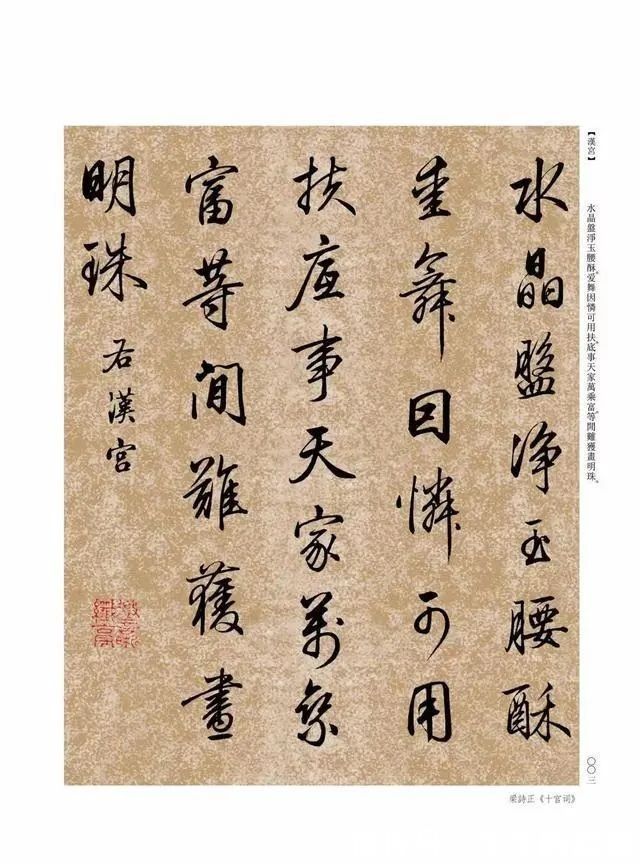 【漢宮】
水晶盤淨玉腰酥。爱舞因憐可用扶。底事天家萬乘富。等閒難獲畫明珠。
水晶盤净玉腰酥
愛舞因憐可用
扶底事天家萬乘
富等閒難獲畫
明珠
右漢宮
〇〇三
梁詩正《十官司》